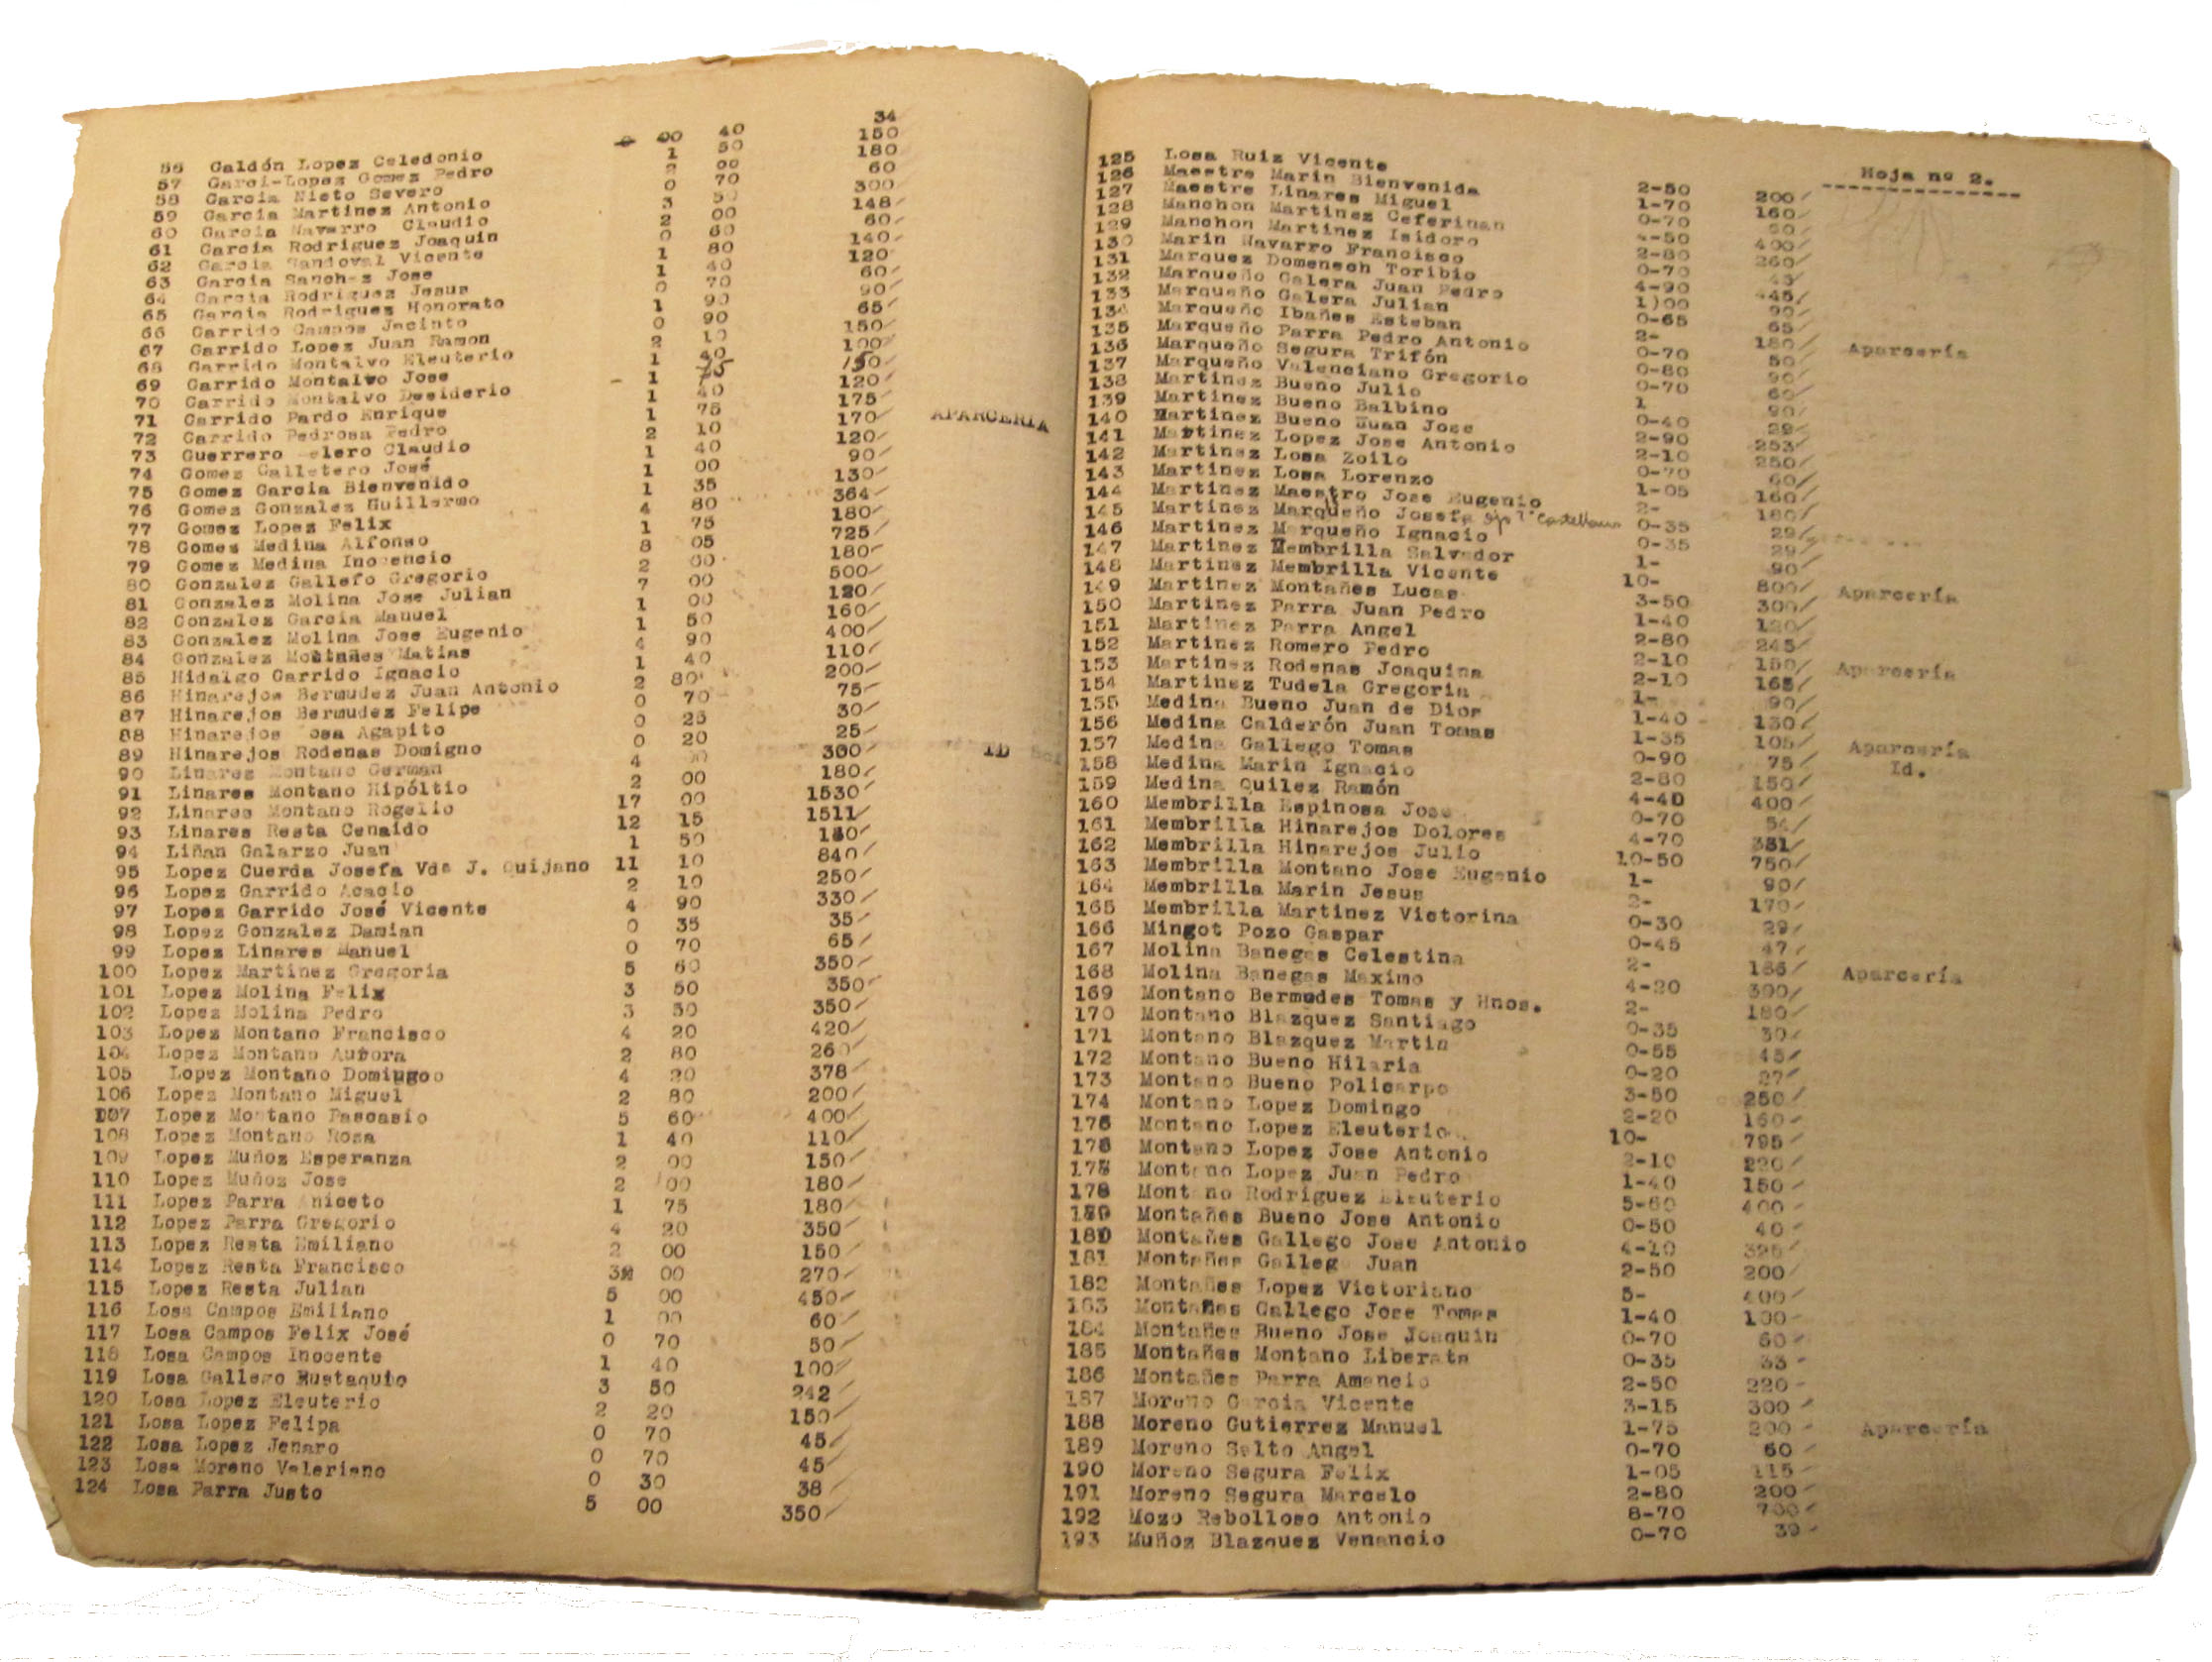 56 Galdón Lopez Celedonio 0 00 40 34
57 Garci-Lopez Gomez Pedro 1 50 150
58 Garcia Nieto Severo 2 00 180
59 Garcia Martinez Antonio 0 70 60
60 Garcia Navarro Claudio 3 50 300
61 Garcia Rodriguez Joaquin 2 00 148
62 Garcia Sandoval Vicente 0 60 60
63 Garcia Sanchez Jose 1 80 140
64 Garcia Rodriguez Jesus 1 40 120
65 Garcia Rodriguez Honorato 0 70 60
66 Garrido Campos Jacinto 1 90 90
67 Garrido Lopez Juan Ramon 0 90 65
68 Garrido Montalvo Eleuterio 2 10 150
69 Garrido Montalvo Jose 1 40 100
70 Garrido Montalvo Desiderio 1 75 150
71 Garrido Pardo Enrique 1 40 120
72 Garrido Pedrosa Pedro 1 75 175
73 Guerrero elero Claudio 2 10 170 APARCERIA
74 Gomez Galletero José 1 40 120
75 Gomez Garcia Bienvenido 1 00 90
76 Gomez Gonzalez Guillermo 1 35 130
77 Gomez Lopez Felix 4 80 364
78 Gomez Medina Alfonso 1 75 180
79 Gomez Medina Inocencio 8 05 725
80 Gonzalez Gallefo Gregorio 2 00 180
81 Gonzalez Molina Jose Julian 7 00 500
82 Gonzalez Garcia Manuel 1 00 120
83 Gonzalez Molina Jose Eugenio 1 50 160
84 Gonzalez Montañes Matias 4 90 400
85 Hidalgo Garrido Ignacio 1 40 110
86 Hinarejos Bermudez Juan Antonio 2 80 200
87 Hinarejos Bermudez Felipe 0 70 75
88 Hinarejos osa Agapito 0 25 30
89 Hinarejos Rodenas Domigno 0 20 25
90 Linares Montano German 4 00 300 ID
91 Linares Montano Hipóltio 2 00 180
92 Linares Montano Rogelio 17 00 1530
93 Linares Resta Cenaido 12 15 1511
94 Liñan Galarzo Juan 1 50 180
95 Lopez Cuerda Josefa Vda J. Quijano 11 10 840
96 Lopez Garrido Acacio 2 10 250
97 Lopez Garrido José Vicente 4 90 330
98 Lopez Gonzalez Damian 0 35 35
99 Lopez Linares Manuel 0 70 65
100 Lopez Martinez Gregoria 5 60 350
101 Lopez Molina Felix 3 50 350
102 Lopez Molina Pedro 3 50 350
103 Lopez Montano Francisco 4 20 420
104 Lopez Montano Aurora 2 80 260
105 Lopez Montano Domingoo 4 20 378
106 Lopez Montano Miguel 2 80 200
107 Lopez Montano Pascasio 5 60 400
108 Lopez Montano Rosa 1 40 110
109 Lopez Muñoz Esperanza 2 00 150
110 Lopez Muñoz Jose 2 00 180
111 Lopez Parra niceto 1 75 180
112 Lopez Parra Gregorio 4 20 350
113 Lopez Resta Emiliano 2 00 150
114 Lopez Resta Francisco 3 00 270
115 Lopez Resta Julian 5 00 450
116 Losa Campos Emiliano 1 00 60
117 Losa Campos Felix José 0 70 50
118 Losa Campos Inocente 1 40 100
119 Losa Gallego Eustaquio 3 50 242
120 Losa Lopez Eleuterio 2 20 150
121 Losa Lopez Felipa 0 70 45
122 Losa Lopez Jenaro 0 70 45
123 Losa Moreno Valeriano 0 30 38
124 Losa Parra Justo 5 00 350
Hoja nº 2.
125 Losa Ruiz Vicente 2-50 200
126 Maestre Marin Bienvenida 1-70 160
127 Maestre Linares Miguel 0-70 50
128 Manchon Martinez Ceferinan 4-50 400
129 Manchon Martinez Isidoro 2-80 260
130 Marin Navarro Francisco 0-70 43
131 Marquez Domenech Toribio 4-90 445
132 Marqueño Galera Juan Pedro 1)00 90
133 Marqueño Galera Julian 0-65 65
134 Marqueño Ibañes Esteban 2- 180 Aparcería
135 Marqueño Parra Pedro Antonio 0-70 50
136 Marqueño Segura Trifón 0-80 90
137 Marqueño Valenciano Gregorio 0-70 60
138 Martinez Bueno Julio 1 90
139 Martinez Bueno Balbino 0-40 29
140 Martinez Bueno Juan Jose 2-90 253
141 Martinez Lopez Jose Antonio 2-10 250
142 Martinez Losa Zoilo 0-70 60
143 Martinez Losa Lorenzo 1-05 160
144 Martinez Maestro Jose Eugenio 2- 180
145 Martinez Marqueño Josefa Castellano 0-35 29
146 Martinez Marqueño Ignacio 0-35 29
147 Martinez Membrilla Salvador 1- 90
148 Martinez Membrilla Vicente 10- 800 Aparcería
149 Martinez Montañes Lucas 3-50 300
150 Martinez Parra Juan Pedro 1-40 120
151 Martinez Parra Angel 2-80 245
152 Martinez Romero Pedro 2-10 150 Aparcería
153 Martinez Rodenas Joaquina 2-10 165
154 Martinez Tudela Gregoria 1- 90
155 Medina Bueno Juan de Dios 1-40 130
156 Medina Calderón Juan Tomas 1-35 105 Aparcería
157 Medina Gallego Tomas 0-90 75 Id.
158 Medina Marin Ignacio 2-80 150
159 Medina Quilez Ramón 4-40 400
160 Membrilla Espinosa Jose 0-70 54
161 Membrilla Hinarejos Dolores 4-70 381
162 Membrilla Hinarejos Julio 10-50 750
163 Membrilla Montano Jose Eugenio 1- 90
164 Membrilla Marin Jesus 2- 170
165 Membrilla Martinez Victorina 0-30 29
166 Mingot Pozo Gaspar 0-45 47
167 Molina Banegas Celestina 2- 186 Aparcería
168 Molina Banegas Maximo 4-20 390
169 Montano Bermudes Tomas y Hnos. 2- 180
170 Montano Blazquez Santiago 0-35 30
171 Montano Blazquez Martin 0-55 45
172 Montano Bueno Hilaria 0-20 27
173 Montano Bueno Policarpo 3-50 250
174 Montano Lopez Domingo 2-20 160
175 Montano Lopez Eleuterio 10- 795
176 Montano Lopez Jose Antonio 2-10 220
177 Montano Lopez Juan Pedro 1-40 150
178 Mont no Rodriguez Eleuterio 5-60 400
179 Montañes Bueno Jose Antonio 0-50 40
180 Montañes Gallego Jose Antonio 4-10 325
181 Montañes Galleg Juan 2-50 200
182 Montañes Lopez Victoriano 5- 400
183 Montañes Gallego Jose Tomas 1-40 100
184 Montañes Bueno Jose Joaquin 0-70 60
185 Montañes Montano Liberata 0-35 33
186 Montañes Parra Amancio 2-50 220
187 Moreno Garcia Vicente 3-15 300
188 Moreno Gutierrez Manuel 1-75 200 Aparcería
189 Moreno Salto Angel 0-70 60
190 Moreno Segura Felix 1-05 115
191 Moreno Segura Marcelo 2-80 200
192 Mozo Rebolloso Antonio 8-70 700
193 Muñoz Blazquez Venancio 0-70 39